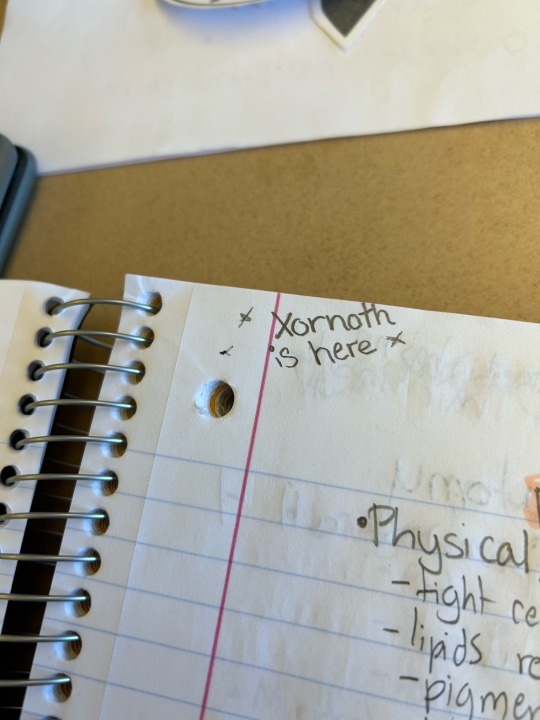 Xornoth
is here
•Physical
-tight ce
-lipids re
-pigmen